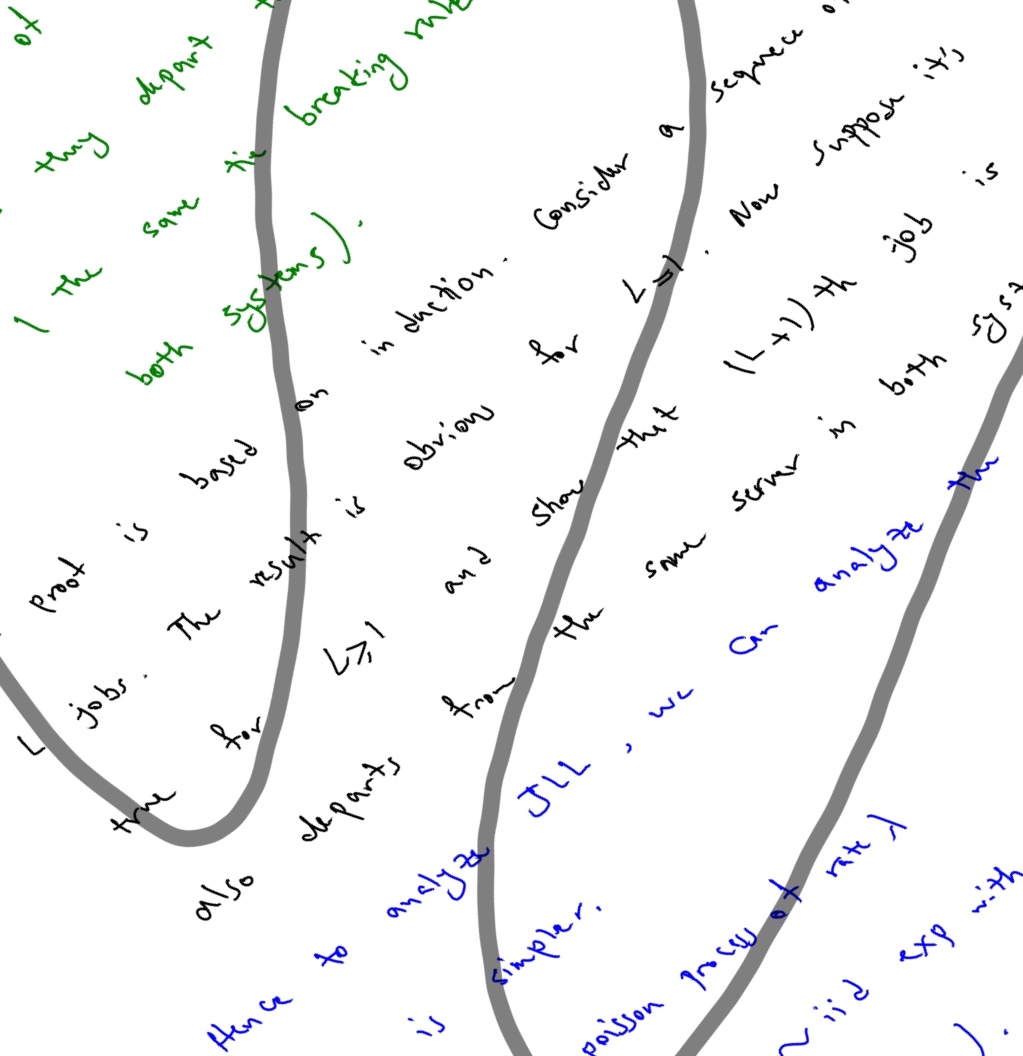 of
they depart
( the same tie breaking rule
both systems).
proof is based on induction. Consider a sequece of
L jobs. The result is obvious for L=1. Now suppose it's
true for L⩾1 and show that (L+1)th job is
also departs from the same server in both syst
Hence to analyze JLL, we can analyze the
is simpler.
poisson process of rate λ
~ iid exp with
).